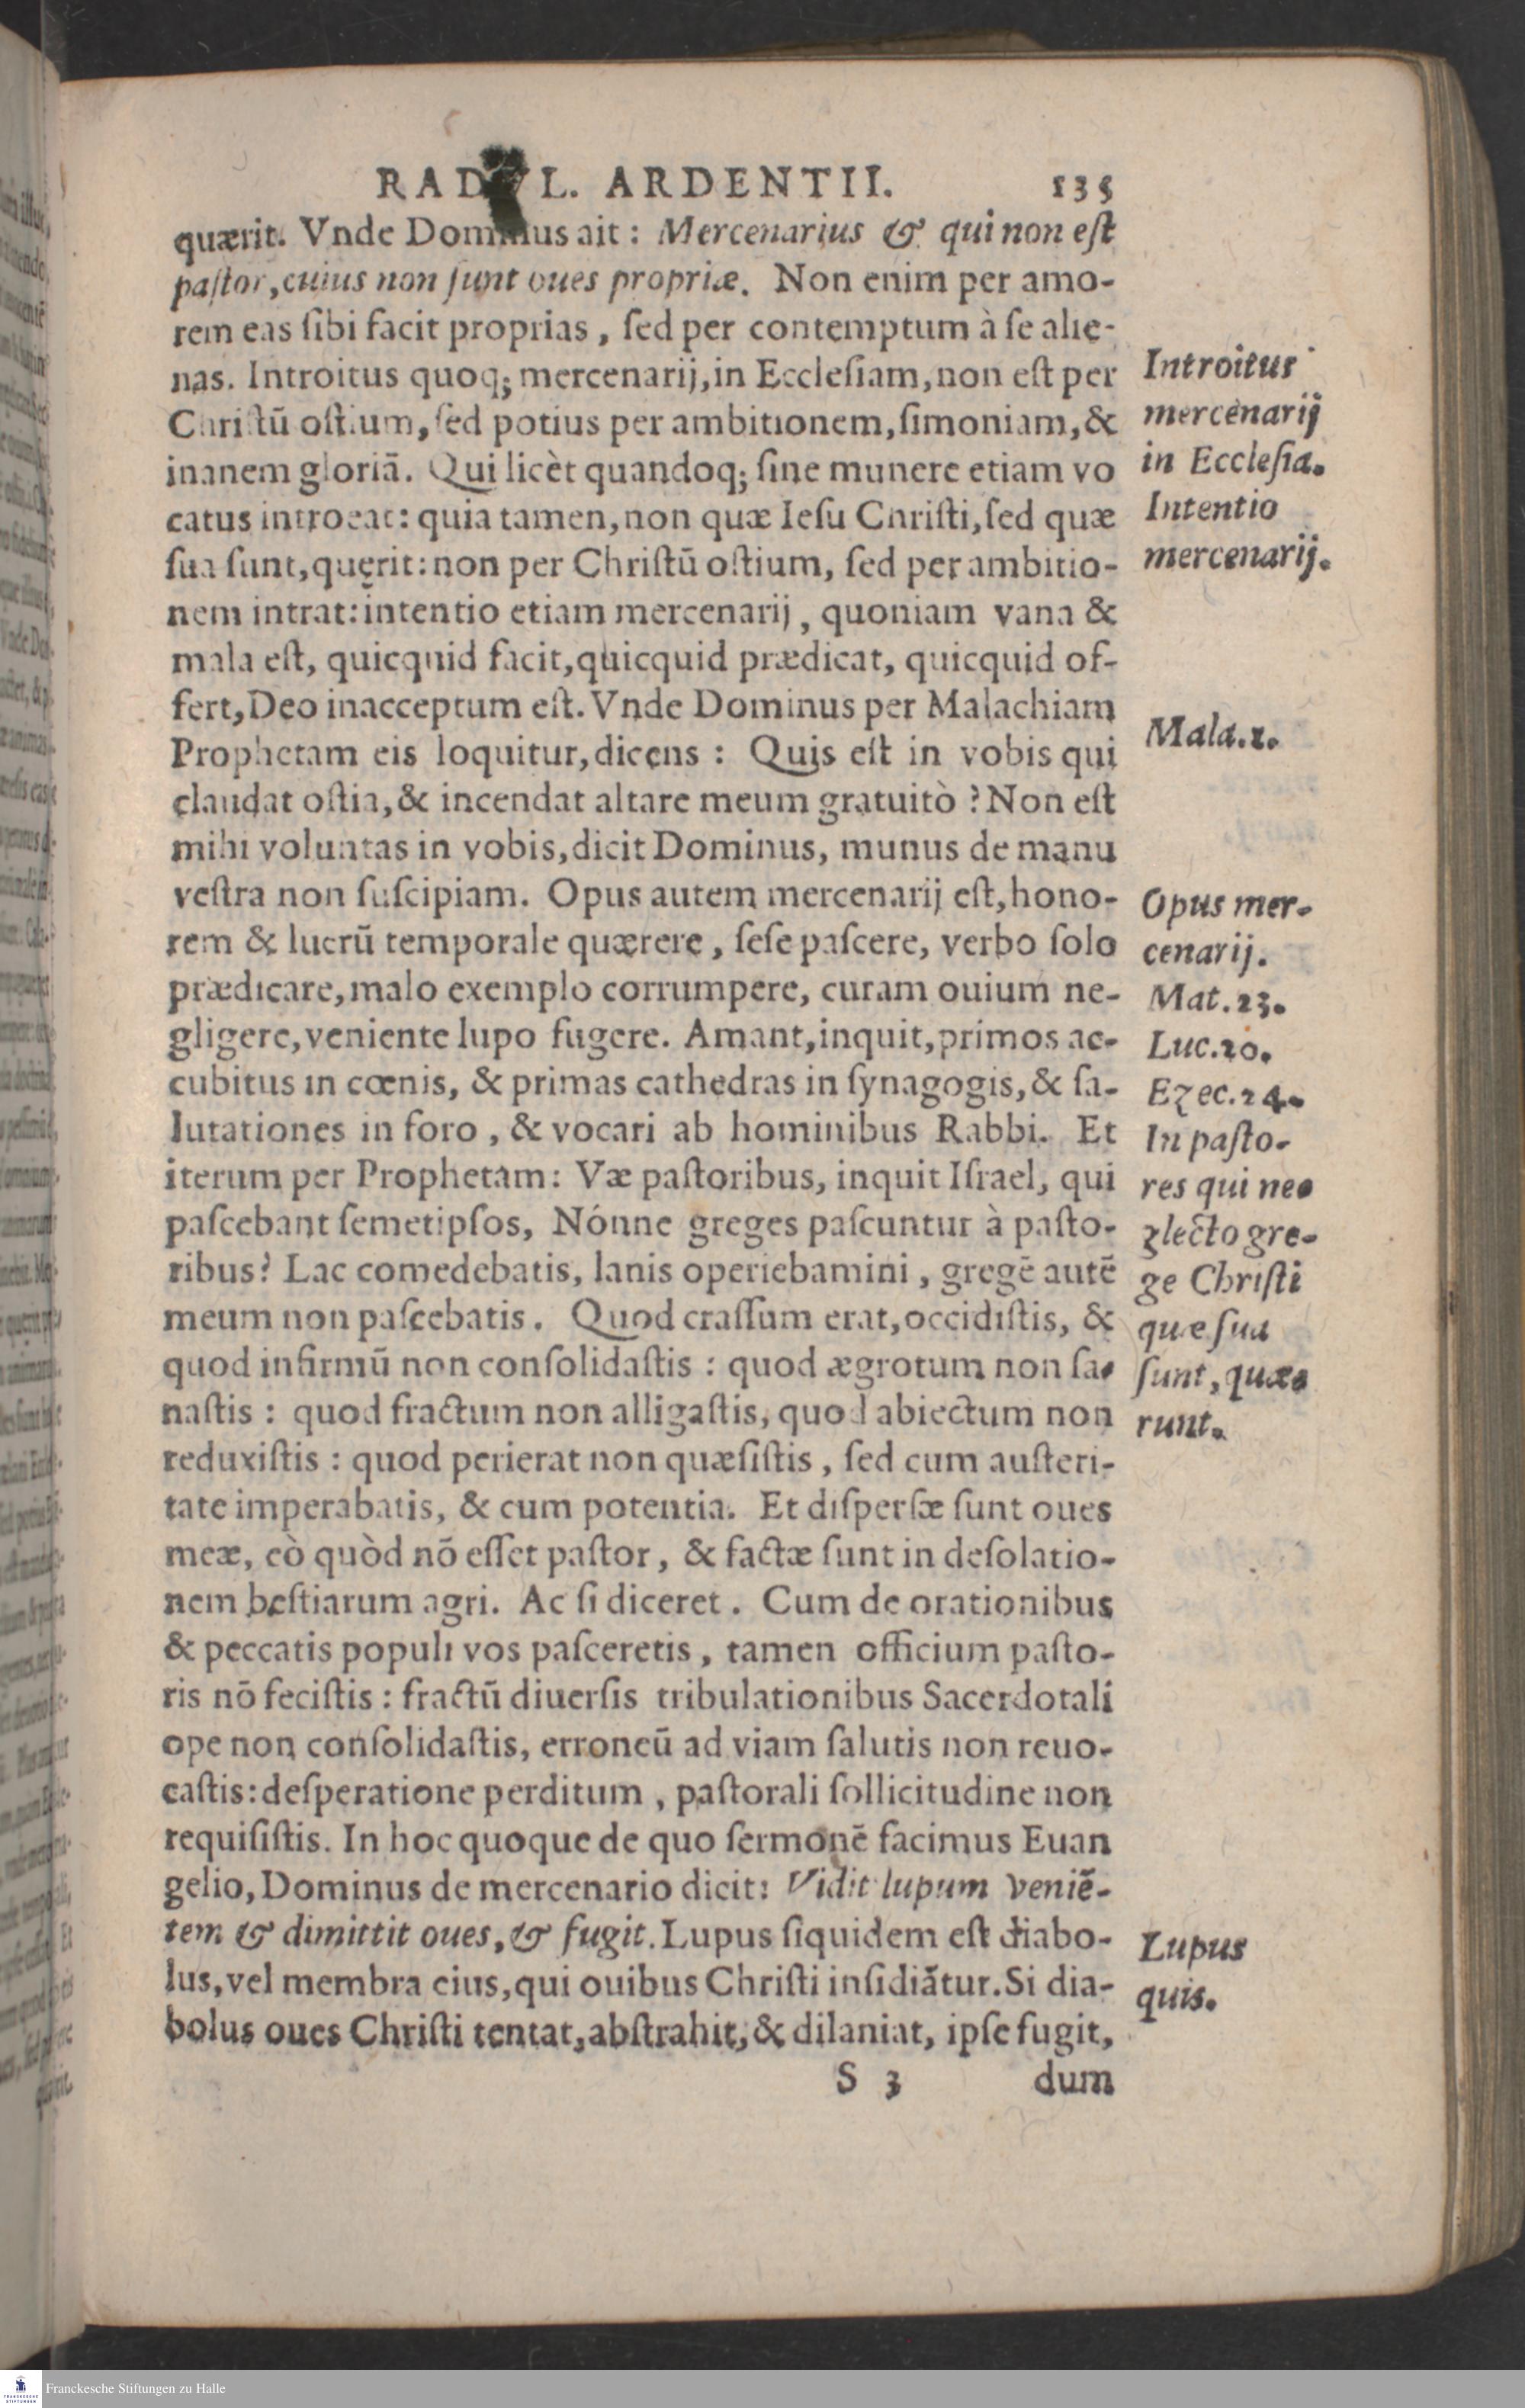 RADVL. ARDENTII. 135
quærit. Vnde Dominus ait: Mercenarius & qui non eſt
paſtor, cuius non ſunt oues propriæ. Non enim per amo-
rem eas ſibi facit proprias, ſed per contemptum à ſe alie-
nas. Introitus quoq; mercenarij, in Eccleſiam, non eſt per
Chriſtū oſtium, ſed potius per ambitionem, ſimoniam, &
inanem gloriā. Qui licèt quandoq; ſine munere etiam vo
catus introeat: quia tamen, non quæ Ieſu Chriſti, ſed quæ
ſua ſunt, quęrit: non per Chriſtū oſtium, ſed per ambitio-
nem intrat: intentio etiam mercenarij, quoniam vana &
mala eſt, quicquid facit, quicquid prædicat, quicquid of-
fert, Deo inacceptum eſt. Vnde Dominus per Malachiam
Prophetam eis loquitur, dicens: Quis eſt in vobis qui
claudat oſtia, & incendat altare meum gratuitò? Non eſt
mihi voluntas in vobis, dicit Dominus, munus de manu
veſtra non ſuſcipiam. Opus autem mercenarij eſt, hono-
rem & lucrū temporale quærere, ſeſe paſcere, verbo ſolo
prædicare, malo exemplo corrumpere, curam ouium ne-
gligere, veniente lupo fugere. Amant, inquit, primos ac-
cubitus in cœnis, & primas cathedras in ſynagogis, & ſa-
lutationes in foro, & vocari ab hominibus Rabbi. Et
iterum per Prophetam: Væ paſtoribus, inquit Iſrael, qui
paſcebant ſemetipſos, Nónne greges paſcuntur à paſto-
ribus? Lac comedebatis, lanis operiebamini, gregē autē
meum non paſcebatis. Quod craſſum erat, occidiſtis, &
quod infirmū non conſolidaſtis: quod ægrotum non ſa-
naſtis: quod fractum non alligaſtis, quod abiectum non
reduxiſtis: quod perierat non quæſiſtis, ſed cum auſteri-
tate imperabatis, & cum potentia. Et diſperſæ ſunt oues
meæ, eò quòd nō eſſet paſtor, & factæ ſunt in deſolatio-
nem beſtiarum agri. Ac ſi diceret. Cum de orationibus
& peccatis populi vos paſceretis, tamen officium paſto-
ris nō feciſtis: fractū diuerſis tribulationibus Sacerdotali
ope non conſolidaſtis, erroneū ad viam ſalutis non reuo-
caſtis: deſperatione perditum, paſtorali ſollicitudine non
requiſiſtis. In hoc quoque de quo ſermonē facimus Euan
gelio, Dominus de mercenario dicit: Vidit lupum veniē-
tem & dimittit oues, & fugit. Lupus ſiquidem eſt diabo-
lus, vel membra eius, qui ouibus Chriſti inſidiātur. Si dia-
bolus oues Chriſti tentat, abſtrahit, & dilaniat, ipſe fugit,
S 3 dum
Introitus
mercenarij
in Eccleſia.
Intentio
mercenarij.
Mala.1.
Opus mer-
cenarij.
Mat.23.
Luc.20.
Ezec.24.
In paſto-
res qui ne-
glecto gre-
ge Chriſti
quæ ſua
ſunt, quæ-
runt.
Lupus
quis.
FRANCKESCHE
STIFTUNGEN
Franckesche Stiftungen zu Halle